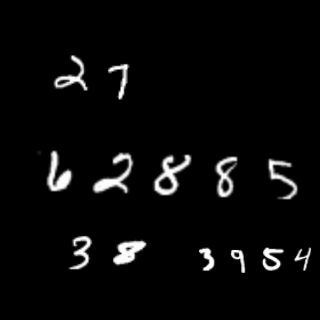 27
62885
38 3954